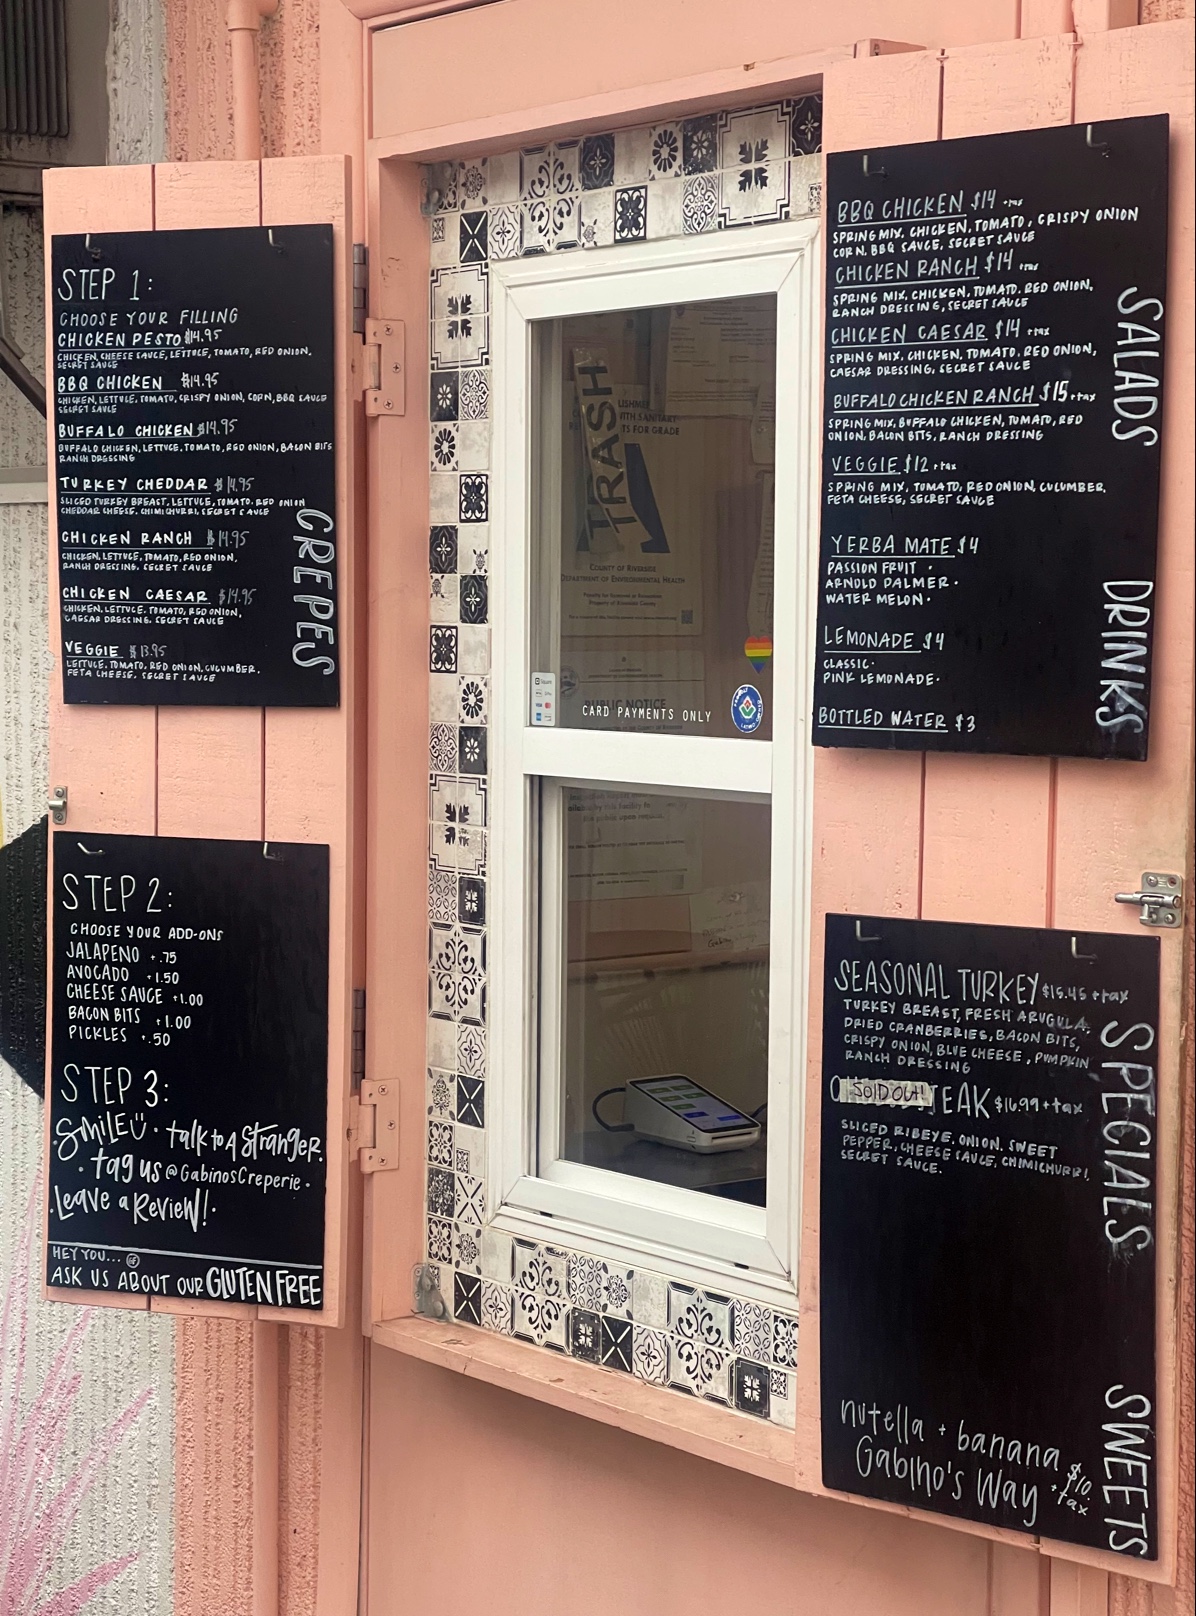 STEP 1:
CHOOSE YOUR FILLING
CHICKEN PESTO $14.95
CHICKEN, CHEESE SAUCE, LETTUCE, TOMATO, RED ONION,
SECRET SAUCE
BBQ CHICKEN $14.95
CHICKEN, LETTUCE, TOMATO, CRISPY ONION, CORN, BBQ SAUCE
SECRET SAUCE
BUFFALO CHICKEN $14.95
BUFFALO CHICKEN, LETTUCE, TOMATO, RED ONION, BACON BITS
RANCH DRESSING
TURKEY CHEDDAR $14.95
SLICED TURKEY BREAST, LETTUCE, TOMATO, RED ONION
CHEDDAR CHEESE, CHIMICHURRI, SECRET SAUCE
CHICKEN RANCH $14.95
CHICKEN, LETTUCE, TOMATO, RED ONION,
RANCH DRESSING, SECRET SAUCE
CHICKEN CAESAR $14.95
CHICKEN, LETTUCE, TOMATO, RED ONION,
CAESAR DRESSING, SECRET SAUCE
VEGGIE $13.95
LETTUCE, TOMATO, RED ONION, CUCUMBER,
FETA CHEESE, SECRET SAUCE
CREPES
STEP 2:
CHOOSE YOUR ADD-ONS
JALAPENO +.75
AVOCADO +1.50
CHEESE SAUCE +1.00
BACON BITS +1.00
PICKLES +.50
STEP 3:
SMILE • talk to A Stranger.
• tag us @GabinosCreperie •
•Leave a Review! •
HEY YOU... GF
ASK US ABOUT OUR GLUTEN FREE
TRASH
TRASH
COUNTY OF RIVERSIDE
DEPARTMENT OF ENVIRONMENTAL HEALTH
PUBLIC NOTICE
CARD PAYMENTS ONLY
BBQ CHICKEN $14 +tax
SPRING MIX, CHICKEN, TOMATO, CRISPY ONION
CORN, BBQ SAUCE, SECRET SAUCE
CHICKEN RANCH $14 +tax
SPRING MIX, CHICKEN, TOMATO, RED ONION,
RANCH DRESSING, SECRET SAUCE
CHICKEN CAESAR $14 +tax
SPRING MIX, CHICKEN, TOMATO, RED ONION,
CAESAR DRESSING, SECRET SAUCE
BUFFALO CHICKEN RANCH $15 +tax
SPRING MIX, BUFFALO CHICKEN, TOMATO, RED
ONION, BACON BITS, RANCH DRESSING
VEGGIE $12 +tax
SPRING MIX, TOMATO, RED ONION, CUCUMBER,
FETA CHEESE, SECRET SAUCE
SALADS
YERBA MATE $4
PASSION FRUIT •
ARNOLD PALMER •
WATER MELON •
LEMONADE $4
CLASSIC •
PINK LEMONADE •
BOTTLED WATER $3
DRINKS
SEASONAL TURKEY $15.45 +tax
TURKEY BREAST, FRESH ARUGULA,
DRIED CRANBERRIES, BACON BITS,
CRISPY ONION, BLUE CHEESE, PUMPKIN
RANCH DRESSING
SOLD OUT! TEAK $16.99 +tax
SLICED RIBEYE, ONION, SWEET
PEPPER, CHEESE SAUCE, CHIMICHURRI,
SECRET SAUCE.
SPECIALS
nutella + banana $10 +tax
Gabino's Way
SWEETS